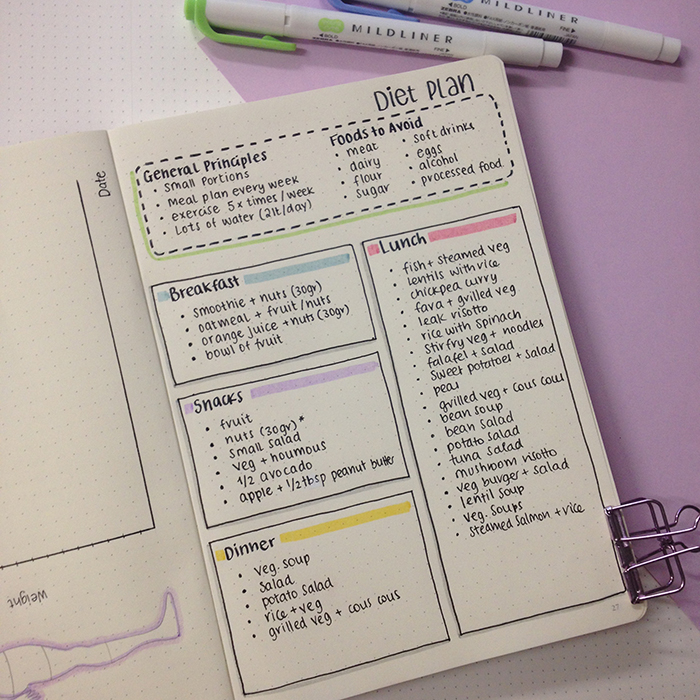 MILDLINER
BOLD
FINE
MILDLINER
BOLD
FINE
Date
Weight
Diet Plan
General Principles
• small portions
• meal plan every week
• exercise 5x times/week
• Lots of water (2lt/day)
Foods to Avoid
• meat
• dairy
• flour
• sugar
• soft drinks
• eggs
• alcohol
• processed food
Breakfast
• smoothie + nuts (30gr)
• oatmeal + fruit/nuts
• orange juice + nuts (30gr)
• bowl of fruit
Snacks
• fruit
• nuts (30gr)*
• small salad
• veg + houmous
• 1/2 avocado
• apple + 1/2 tbsp peanut butter
Dinner
• veg. soup
• salad
• potato salad
• rice + veg
• grilled veg + cous cous
Lunch
• fish + steamed veg
• lentils with rice
• chickpea curry
• fava + grilled veg
• leak risotto
• rice with spinach
• stir fry veg + noodles
• falafel + salad
• sweet potatoes + salad
• peas
• grilled veg + cous cous
• bean soup
• bean salad
• potato salad
• tuna salad
• mushroom risotto
• veg burger + salad
• lentil soup
• veg. soups
• steamed salmon + rice
27